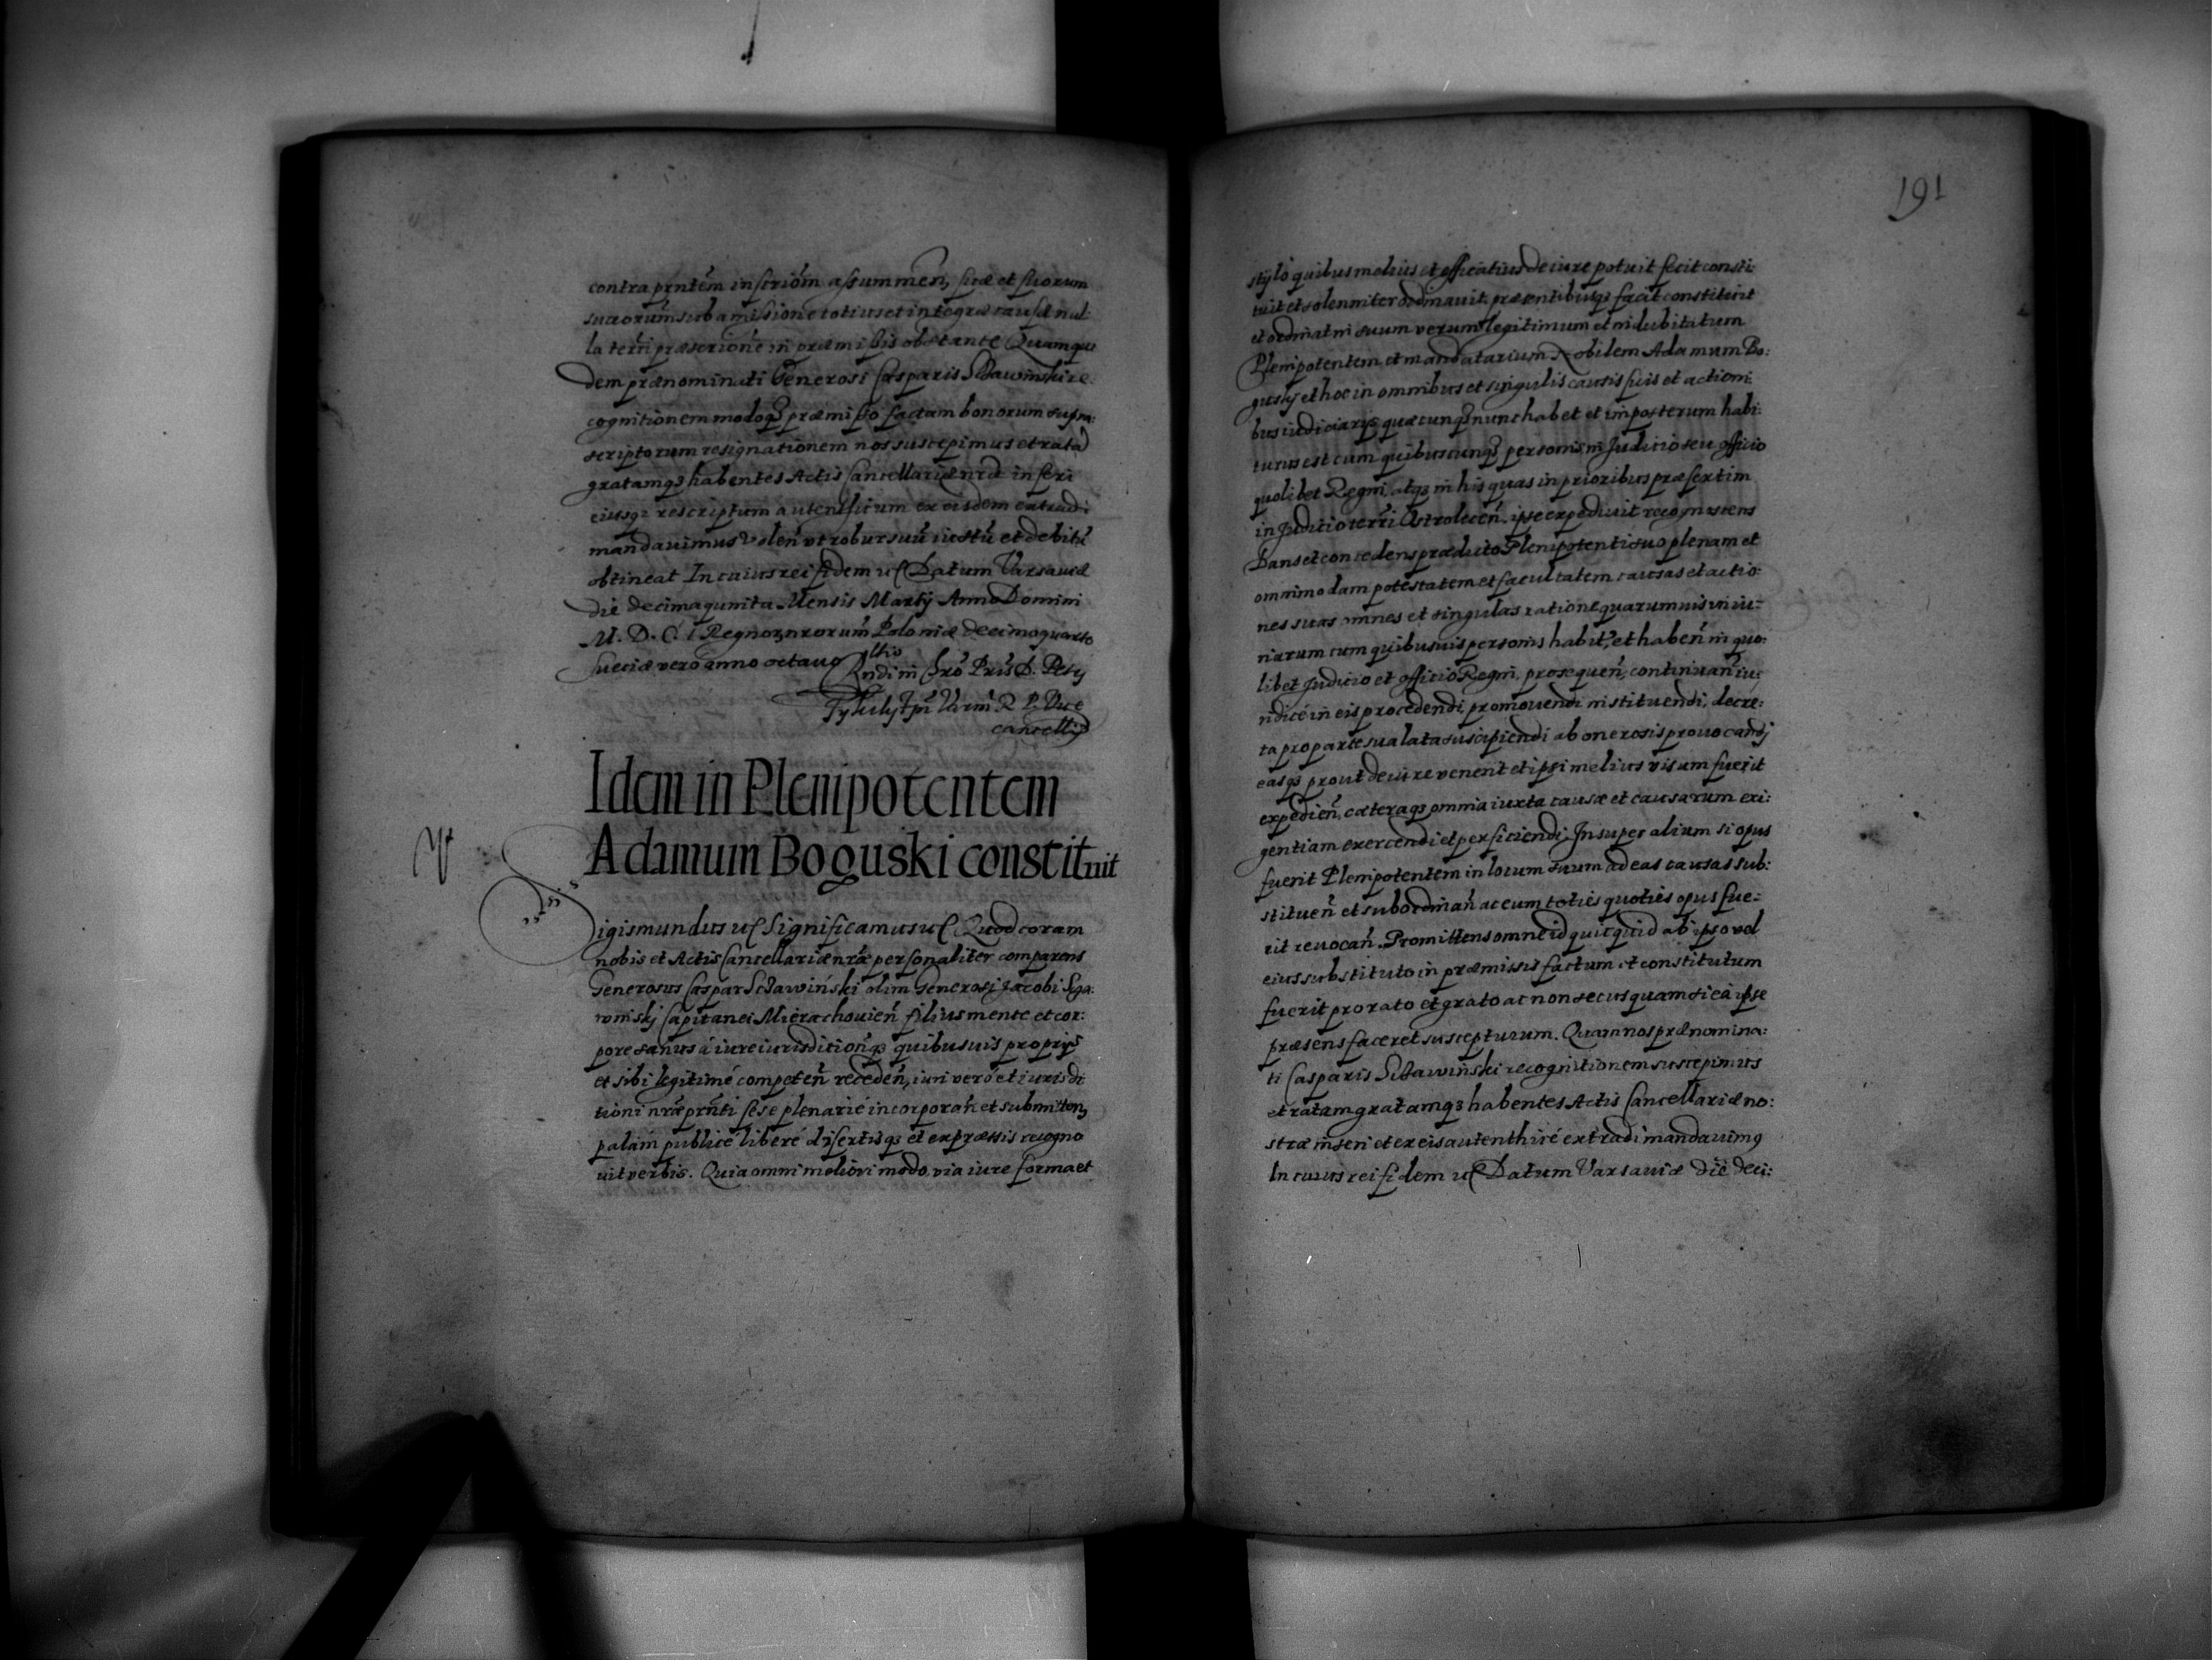 contra prntẽm inscriõm assummeñ, suæ et suorum
succorum sub amissione totius et integræ causæ nul-
la terri præscrione in præmissis obstante Quamqui
dem prænominati Generosi Casparis Sdawinski re-
cognitionem modoqȝ præmisso factam bonorum supra-
scriptorum resignationem nos suscepimus et rata
gratamqȝ habentes Actis Cancellariæ nræ inseri
eiusqȝ rescriptum autenthicum ex eisdem extradi
mandauimus Voleñ vt robur suũ iustũ et debitũ
obtineat In cuius rei fidem uc Datum Varsauiæ
die decima quinta Mensis Martij Anno Domini
M. D. C. i Regnorȝ nrorum Poloniæ decimoquarto
Sueciæ vero anno octauo
Rndi in Chro Pris D. Petri
Tylicly Epi Varm R. P. Vice
cancellij
Idem in Plenipotentem
Adamum Boguski constituit
igismundus uc Significamus uc Quod coram
nobis et Actis Cancellariæ nræ personaliter comparens
Generosus Caspar Sdawiński olim Generosi Jacobi Sga-
winskj Capitanei Mierachouieñ filius mente et cor-
pore sanus à iure iurisditioñqȝ quibusuis proprijs
et sibi legitimé competeñ recedeñ, iuri veró et iurisdi
tioni nræ prñti sese plenarié incorporañ et submitten,
palám publicé liberé disertisqȝ et expræssis recogno
uit verbis. Quia omni meliori modo, via iure forma et
191
stylo quibus melius et efficatius de iure potuit fecit consti-
tuit et solenniter ordinauit præsentibusqȝ facit constituit
et ordinat in suum verum legitimum et indubitatum
Plenipotentem et mandatarium Nobilem Adamum Bo-
guskj et hoc in omnibus et singulis causis suis et actioni-
bus iudiciarijs quæcunqȝ nunc habet et imposterum habi-
turus est cum quibuscunqȝ personis, in Juditio seu officio
quolibet Regni, atqȝ in his quas in prioribus præsertim
in Juditio terri Ostroleceñ. ipse expediuit recognoscens
Dans et concedens prædicto Plenipotenti suo plenam et
omnimodam potestatem et facultatem causas et actio-
nes suas omnes et singulas ratione quarumuis iniu-
riarum cum quibusuis personis habit, et habeñ in quo-
libet Juditio et officio Regni, prosequeñ, continuañ iu-
ridicé in eis procedendi, promouendi instituendi, decre-
ta pro parte sua lata suscipiendi ab onerosis prouocandj
easqȝ prout de iure venerit et ipsi melius visum fuerit
expedieñ, cæteraqȝ omnia iuxta causæ et causarum exi-
gentiam exercendi et perficiendi, Insuper alium si opus
fuerit Plenipotentem in locum suum ad eas causas sub-
stitueñ et subordinañ ac eum toties quoties opus fue-
rit reuocañ. Promittens omne id quicquid ab ipso vel
eius substituto in præmissis factum et constitutum
fuerit pro rato et grato ac non secus quam si ea ipse
præsens faceret suscepturum. Quam nos prænomina-
ti Casparis Sdawiński recognitionem suscepimus
et ratam gratamqȝ habentes Actis Cancellariæ no-
stræ inseri et ex eis autenthicé extradi mandauimꝰ
In cuius rei fidem uc Datum Varsauiæ die deci-